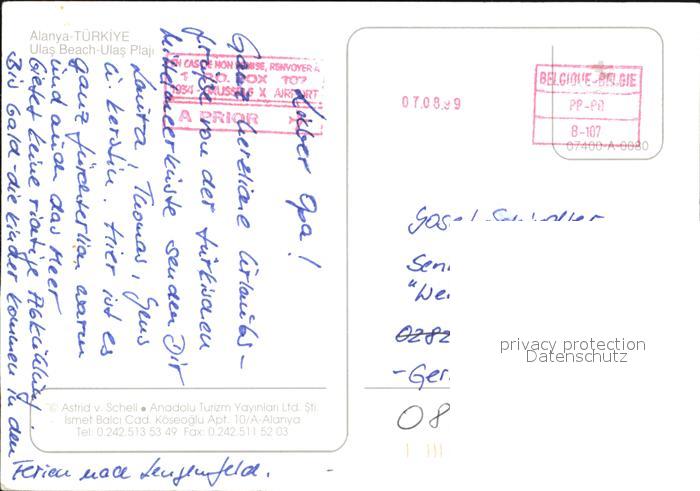 Alanya-TÜRKİYE
Ulaş Beach-Ulaş Plajı
EN CAS DE NON REMISE, RENVOYER A
P.O. BOX 107
1934 BRUSSELS X AIRPORT
A PRIOR
07.08.99
BELGIQUE-BELGIE
PP-PB
B-107
07400-A-0080
Lieber Opa!
Ganz herzliche Urlaubs-
grüße von der türkischen
Mittelmeerküste senden Dir
Laura, Thomas, Jens
u. Kerstin. Hier ist es
ganz fürchterlich warm
und auch das Meer
bietet keine riesige Abkühlung.
Bis bald - die Kinder kommen in den
Ferien nach Lengenfeld.
Sen
"We
0282
-Ger.
08
privacy protection
Datenschutz
© Astrid v. Schell • Anadolu Turizm Yayınları Ltd. Şti.
İsmet Balcı Cad. Köseoğlu Apt. 10/A-Alanya
Tel: 0.242.513 53 49 Fax: 0.242.511 52 03